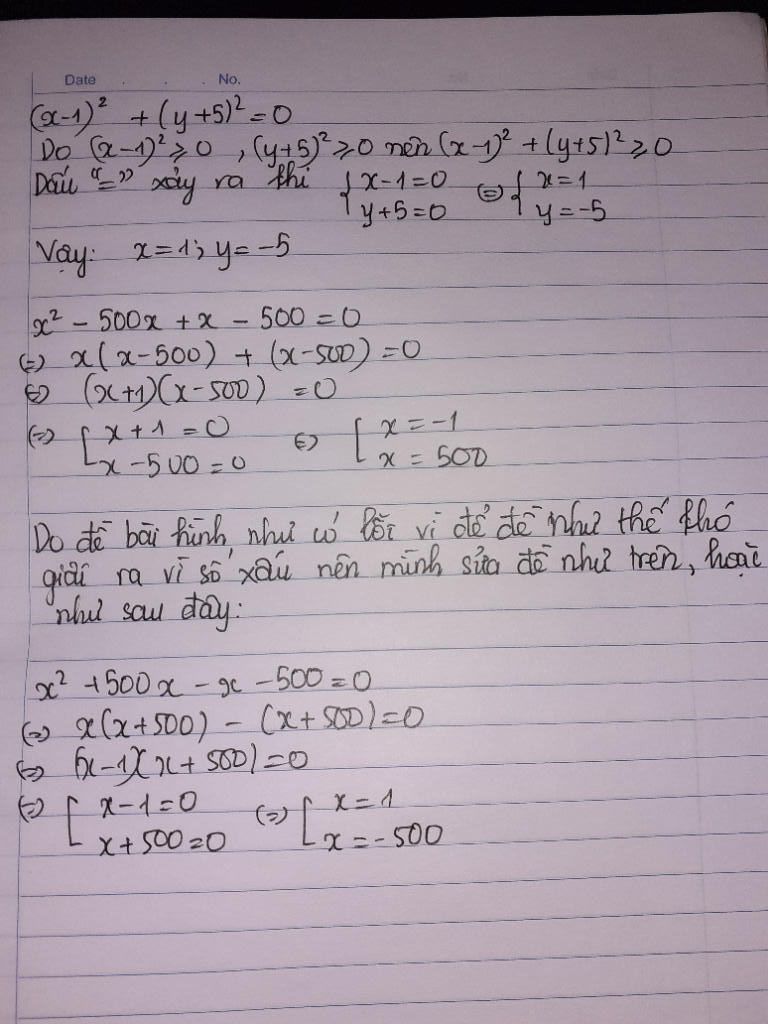 Date . . . No.
(x-1)² + (y+5)² = 0
Do (x-1)² ⩾ 0 , (y+5)² ⩾ 0 nên (x-1)² + (y+5)² ⩾ 0
Dấu "=" xảy ra thì { x-1=0 ⇔ { x=1
y+5=0 y=-5
Vậy: x=1; y=-5
x² - 500x + x - 500 = 0
⇔ x(x-500) + (x-500) = 0
⇔ (x+1)(x-500) = 0
⇔ [ x+1 = 0 ⇔ [ x = -1
x-500 = 0 x = 500
Do đề bài hình như có lỗi vì để đề như thế khó
giải ra vì số xấu nên mình sửa đề như trên, hoặc
như sau đây:
x² + 500x - x - 500 = 0
⇔ x(x+500) - (x+500) = 0
⇔ (x-1)(x+500) = 0
⇔ [ x-1=0 ⇔ [ x=1
x+500=0 x=-500